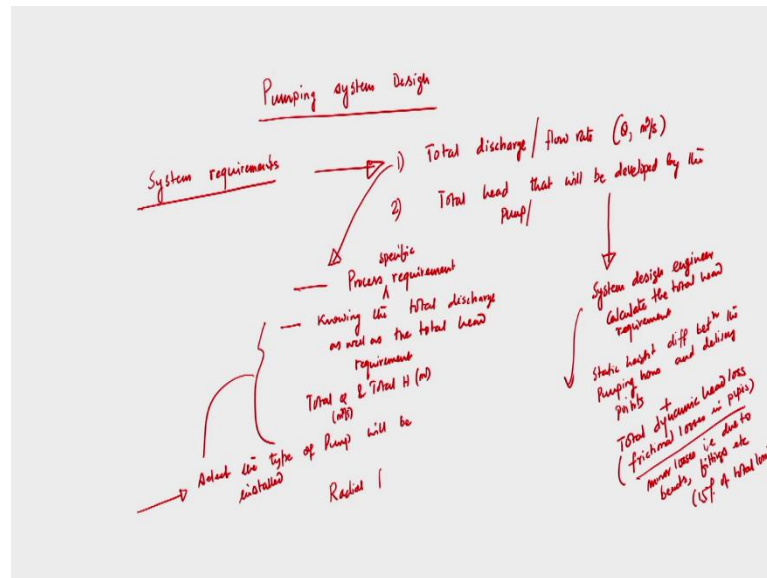 Pumping system Design
System requirements
1) Total discharge / flow rate (Q, m³/s)
2) Total head that will be developed by the
Pump/
specific
Process requirement
Knowing the total discharge
as well as the total head
requirement
Total Q & Total H (m)
(m³/s)
Select the type of Pump will be
installed
Radial
System design engineer
Calculate the total head
requirement
Static height diff betⁿ the
Pumping home and delivery
points
+
Total dynamic head loss
(frictional losses in pipes)
minor losses i.e due to
bends, fittings etc
(15% of total